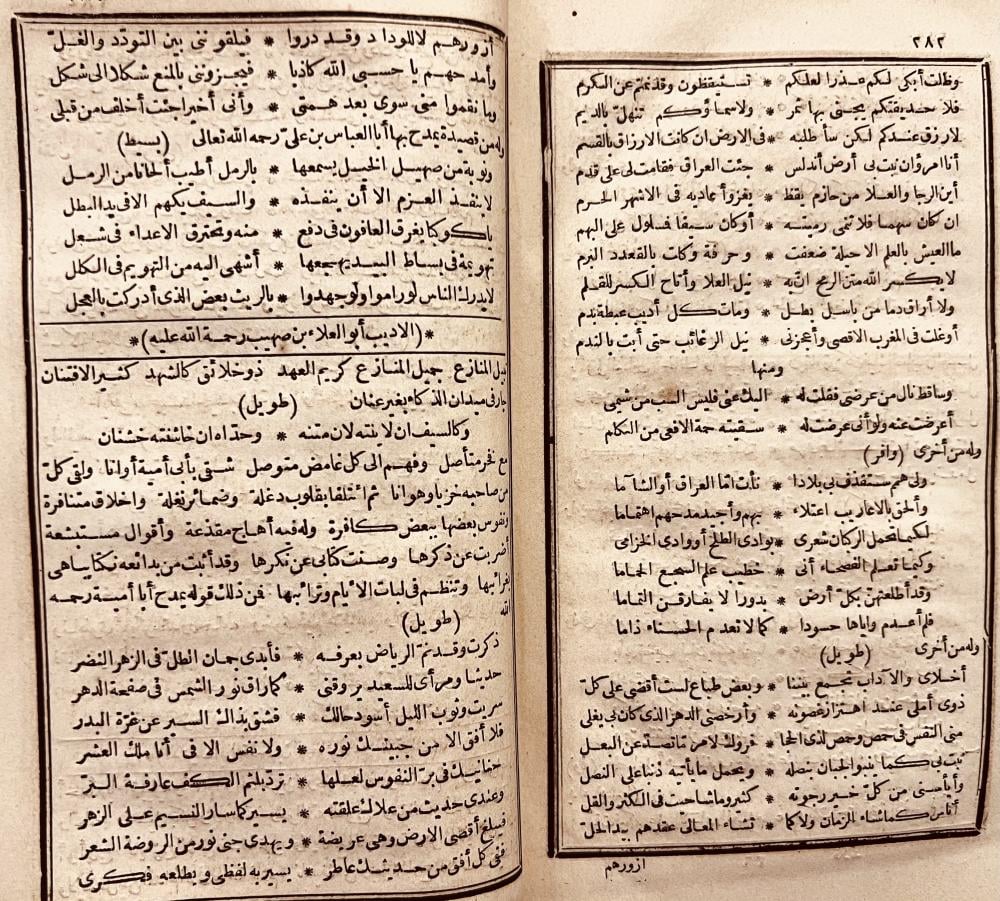 ٢٨٢
وظلت أبكى لكم عذرا لعلكم * تستيقظون وقد نمتم عن الكرم
فلا حديقتكم يجنى بها ثمر * ولا سماؤكم تنهل بالديم
لا رزق عندكم لكن سأطلبه * فى الارض ان كانت الارزاق بالقسم
أنا امرؤ ان نبت بى أرض أندلس * جئت العراق فقامت لى على قدم
أين الرجا والعلا من حازم يقظ * يغزو أعاديه فى الاشهر الحرم
ان كان سهما فلا تنمى رميته * أو كان سيفا فسلول على البهم
ما العيش بالعلم الا حيلة ضعفت * وحرفة وكات بالقعدد البرم
لا يكسر الله متن الرمح ان به * نيل العلا وأتاح الكسر للقلم
ولا أراق دما من باسل بطل * ومات كل أديب عبطة بدم
أوغلت فى المغرب الاقصى وأعجزنى * نيل الرغائب حتى أبت بالندم
ومنها
وساقط نال من عرضى فقلت له * اليك عنى فليس السب من شيمى
أعرضت عنه ولو أنى عرضت له * سقيته حمة الافعى من الكلم
وله من أخرى (وافر)
ولى همم ستقذف بى بلادا * نأت اما العراق أو الشآما
وألحق بالاعاريب اعتلاء * بهم وأجيد مدحهم اهتماما
لكيما تحمل الركبان شعرى * بوادى الطلح أو وادى الخزامى
وكيما تعلم الفصحاء أنى * خطيب علم السجع الحماما
وقد أطلعتهن بكل أرض * بدورا لا يفارقن التماما
فلم أعدم واياها حسودا * كما لا تعدم الحسناء ذاما
وله من أخرى (طويل)
أخلاى والآداب تجمع بيننا * وبعض طباع لست أقضى على كل
ذوى أملى عند اهتزاز غصونه * وأرخصنى الدهر الذى كان بى يغلى
منى النفس فى حمص وحمص لذى الحجا * فروك لامر ما تصد عن البعل
نبت بى كما ينبو الجبان بنصله * ويحمل ما يأتيه ذنبا على النصل
وأيأسنى من كل خير رجوته * كثير وما شاحت فى الكثر والقل
أناس كما شاء الزمان ولا كما * تشاء المعالى عقدهم بيد الحل
ازورهم
أزورهم لا للوداد وقد دروا * فيلقوننى بين التودد والغل
وأمدحهم يا حسبى الله كاذبا * فيجزوننى بالمنع شكلا الى شكل
وما نقموا منى سوى بعد همتى * وأنى أخيرا جئت أخلف من قبلى
وله من قصيدة يمدح بها أبا العباس بن على رحمه الله تعالى (بسيط)
ونوبة من صهيل الخيل يسمعها * بالرمل أطيب ألحانا من الرمل
لا ينفذ العزم الا أن ينفذه * والسيف يكهم الا فى يد البطل
يا كوكبا يغرق العافون فى دفع * منه وتحترق الاعداء فى شعل
تهويمة فى بساط البيد يهجعها * أشهى اليه من التهويم فى الكلل
لا يدرك الناس لو راموا ولو جهدوا * بالريث بعض الذى أدركت بالعجل
*(الاديب أبو العلاء بن صهيب رحمة الله عليه)*
نبيل المنازع جميل المنازع كريم العهد ذو خلائق كالشهد كثير الافتنان
جار فى ميدان الذكاء بغير عنان (طويل)
وكالسيف ان لاينته لان متنه * وحداه ان خاشنته خشنان
مع فخر متأصل وفهم الى كل غامض متوصل شقى بأبى أمية أوانا ولقى كل
من صاحبه خزيا وهوانا ثم ائتلفا بقلوب دغلة وضمائر نغلة واخلاق متنافرة
ونفوس بعضها ببعض كافرة وله فيه أهاج مقذعة وأقوال مستبشعة
أضربت عن ذكرها وصنت كتابى عن نكرها وقد أثبت من بدائعه نكتا يباهى
بغرائبها وتنظم فى لبات الايام وترائبها فمن ذلك قوله يمدح أبا أمية رحمه
الله (طويل)
ذكرت وقد نم الرياض بعرفه * فأبدى جمان الطل فى الزهر النضر
حديثا ومرأى للسعيد يروقنى * كما راق نور الشمس فى صفحة الدهر
سريت وثوب الليل أسود حالك * فشق بذاك السير عن غرة البدر
فلا أفق الا من جبينك نوره * ولا نفس الا فى أناملك العشر
حنانيك فى بر النفوس لعلها * ترد بلثم الكف عارفة البر
وعندى حديث من علاك علقته * يسير كما سار النسيم على الزهر
فيبلغ أقصى الارض وهى عريضة * ويهدى جنى نور من الروضة الشعر
ففى كل أفق من حديثك عاطر * يسير به لفظى ويطلعه فكرى